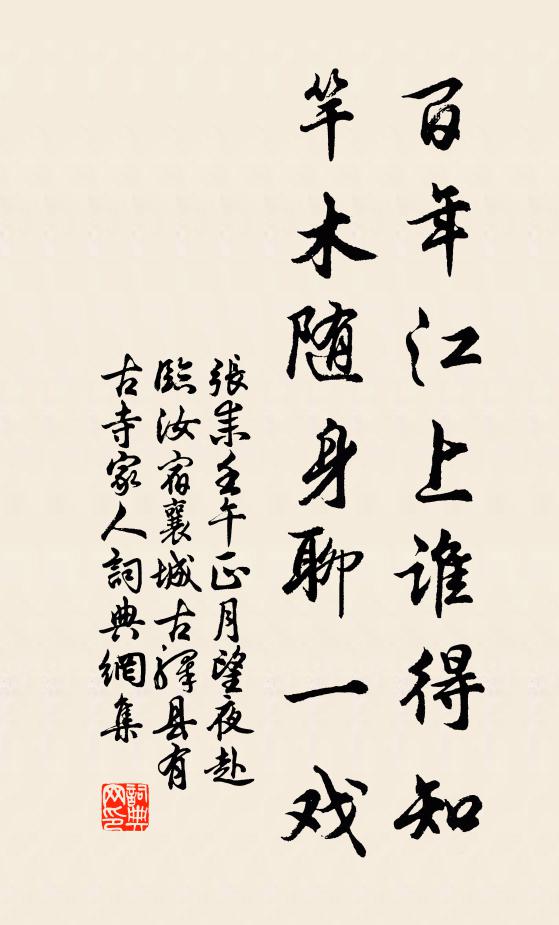 百年江上谁得知
竿木随身聊一戏
張耒壬午正月望夜赴
臨汝宿襄城古驛县有
古寺家人詞典網集
詞典
网印